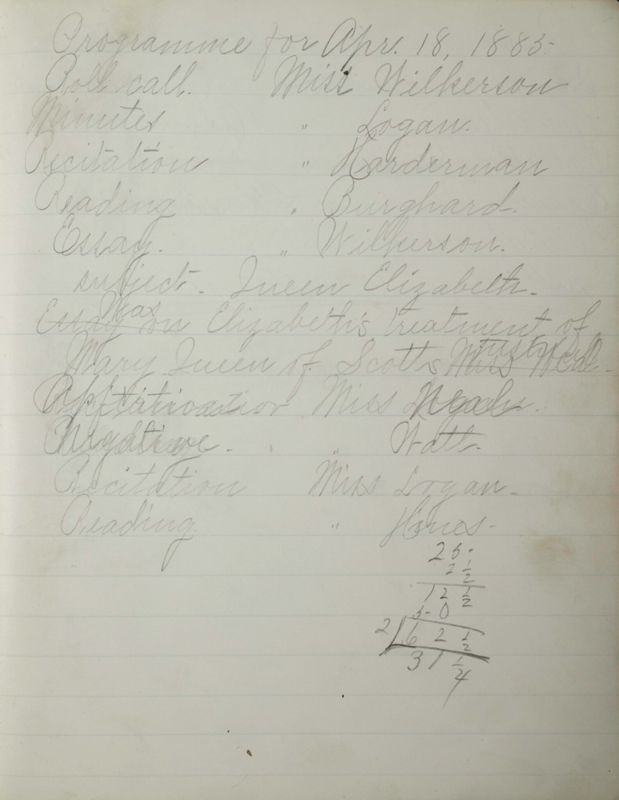 Programme for Apr. 18, 1885-
Roll call. Miss Wilkerson
Minutes " Logan.
Recitation " Harderman
Reading " Burghard.
Essay. " Wilkerson.
subject. Queen Elizabeth.
Essay Was Elizabeth's treatment of
Mary Queen of Scotts
Miss
Negative. " Watt.
Recitation Miss Logan.
Reading " Hines-
25-
2 1/2
12 1/2
5-0
2 62 1/2
31 1/4